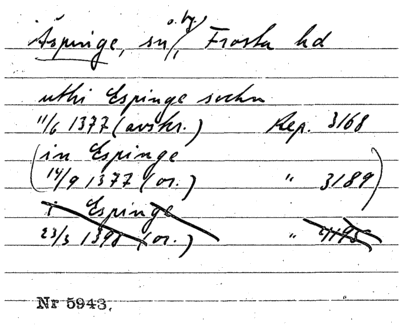 o. by
Äspinge, sn, Frosta hd
uthi Espinge sockn
11/6 1377 (avskr.) Rep. 3168
(in Espinge
14/9 1377 (or.) " 3189)
i Espinge
23/3 1398 (or.) " 4195
Nr 5943.